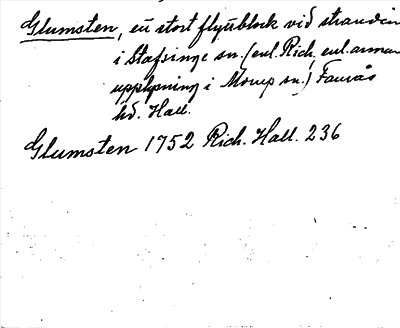 Glumsten, ett stort flyttblock vid stranden
i Stafsinge sn. (enl. Rich, enl. annan
upplysning i Morup sn.) Faurås
hd. Hall.
Glumsten 1752 Rich. Hall. 236